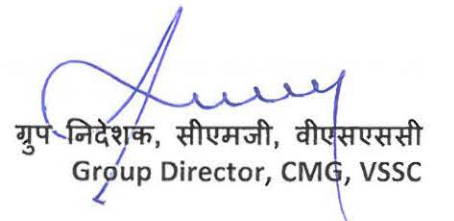 ग्रुप निदेशक, सीएमजी, वीएसएससी
Group Director, CMG, VSSC